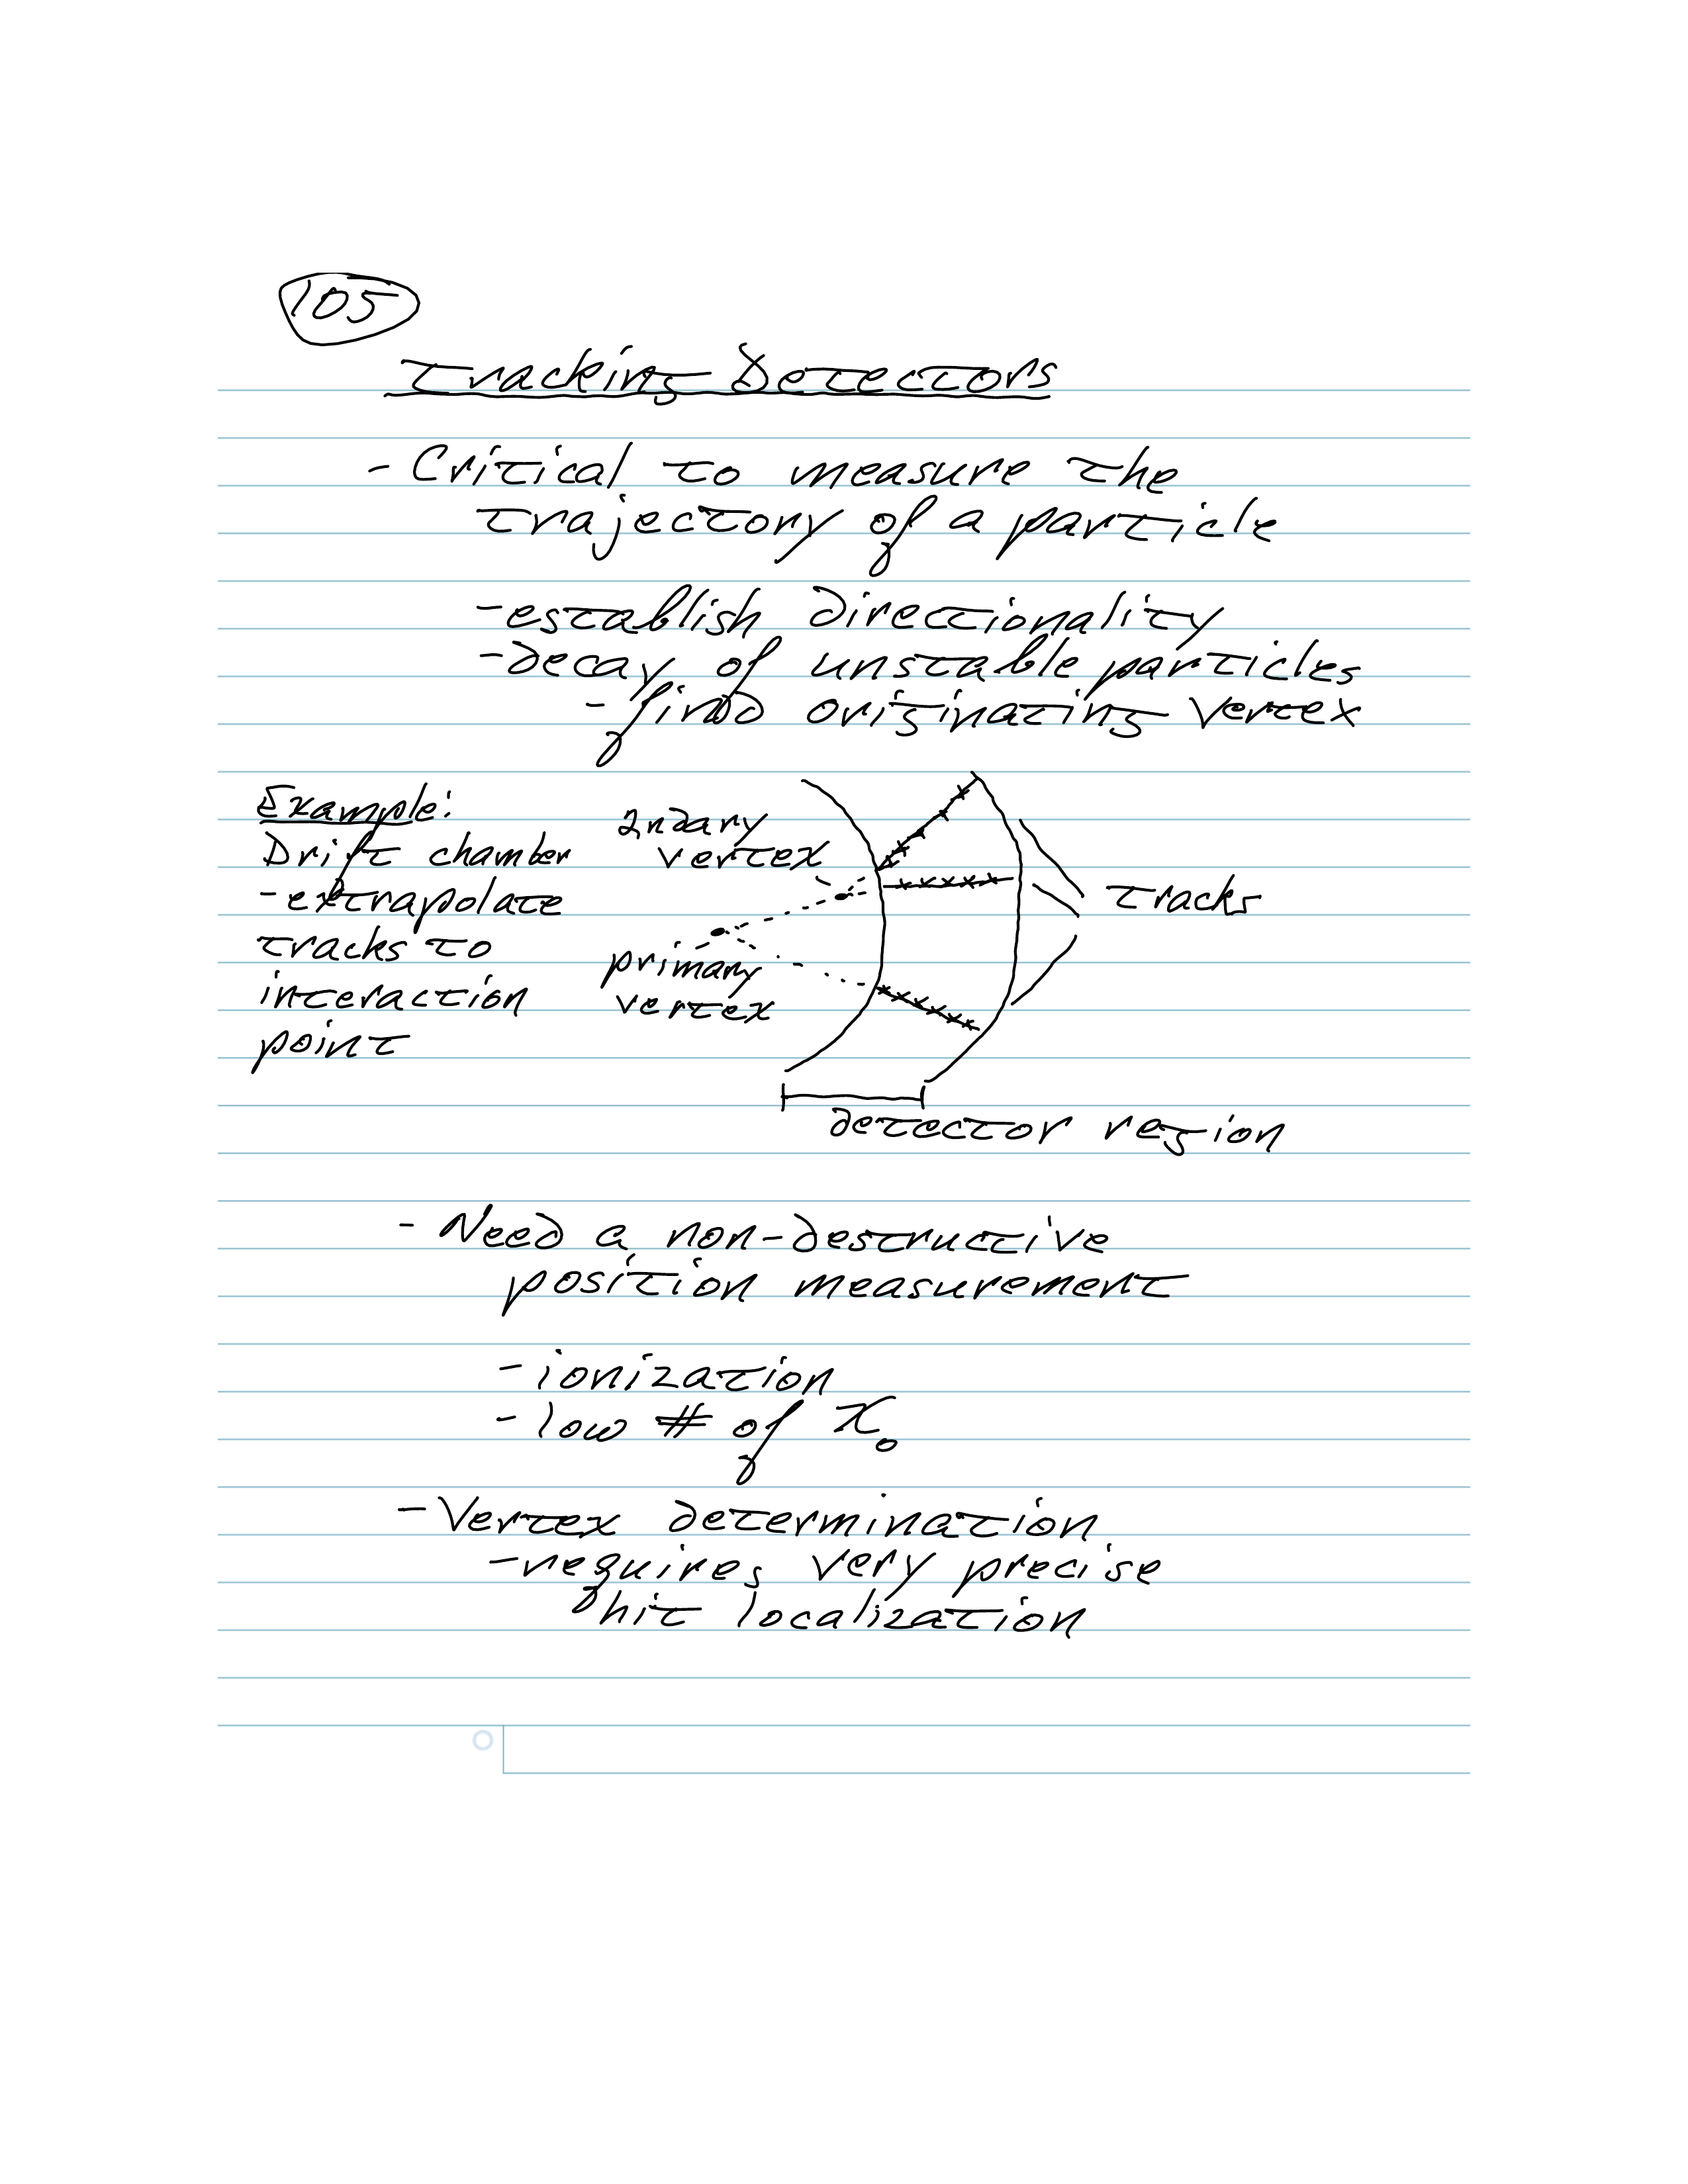 105
Tracking Detectors
- Critical to measure the
trajectory of a particle
- establish directionality
- decay of unstable particles
- find originating vertex
Example:
Drift chamber
- extrapolate
tracks to
interaction
point
2ndary
vertex
primary
vertex
tracks
detector region
- Need a non-destructive
position measurement
- ionization
- low # of X₀
- Vertex determination
- requires very precise
hit localization